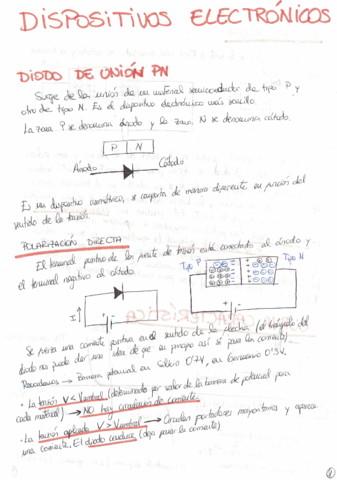 DISPOSITIVOS ELECTRÓNICOS
DIODO DE UNIÓN PN
Surge de la unión de un material semiconductor de tipo P y
otro de tipo N. Es el dispositivo electrónico más sencillo.
La zona P se denomina ánodo y la zona N se denomina cátodo.
P N
Ánodo Cátodo
Es un dispositivo asimétrico, se comporta de manera diferente en función del
sentido de la tensión.
POLARIZACIÓN DIRECTA
El terminal positivo de la fuente de tensión está conectado al ánodo y
el terminal negativo al cátodo.
Tipo P Tipo N
I
Se crea una corriente positiva en el sentido de la flecha (el triángulo del
diodo nos puede dar una idea de que en principio así sí pasa la corriente)
Recordamos → Barrera potencial en Silicio 0'7V, en Germanio 0'3V.
• La tensión V < Vumbral (determinado por valor de la barrera de potencial para
cada material) → NO hay circulación de corriente.
• La tensión aplicada V > Vumbral → Circulan portadores mayoritarios y aparece
una corriente. El diodo conduce (deja pasar la corriente)